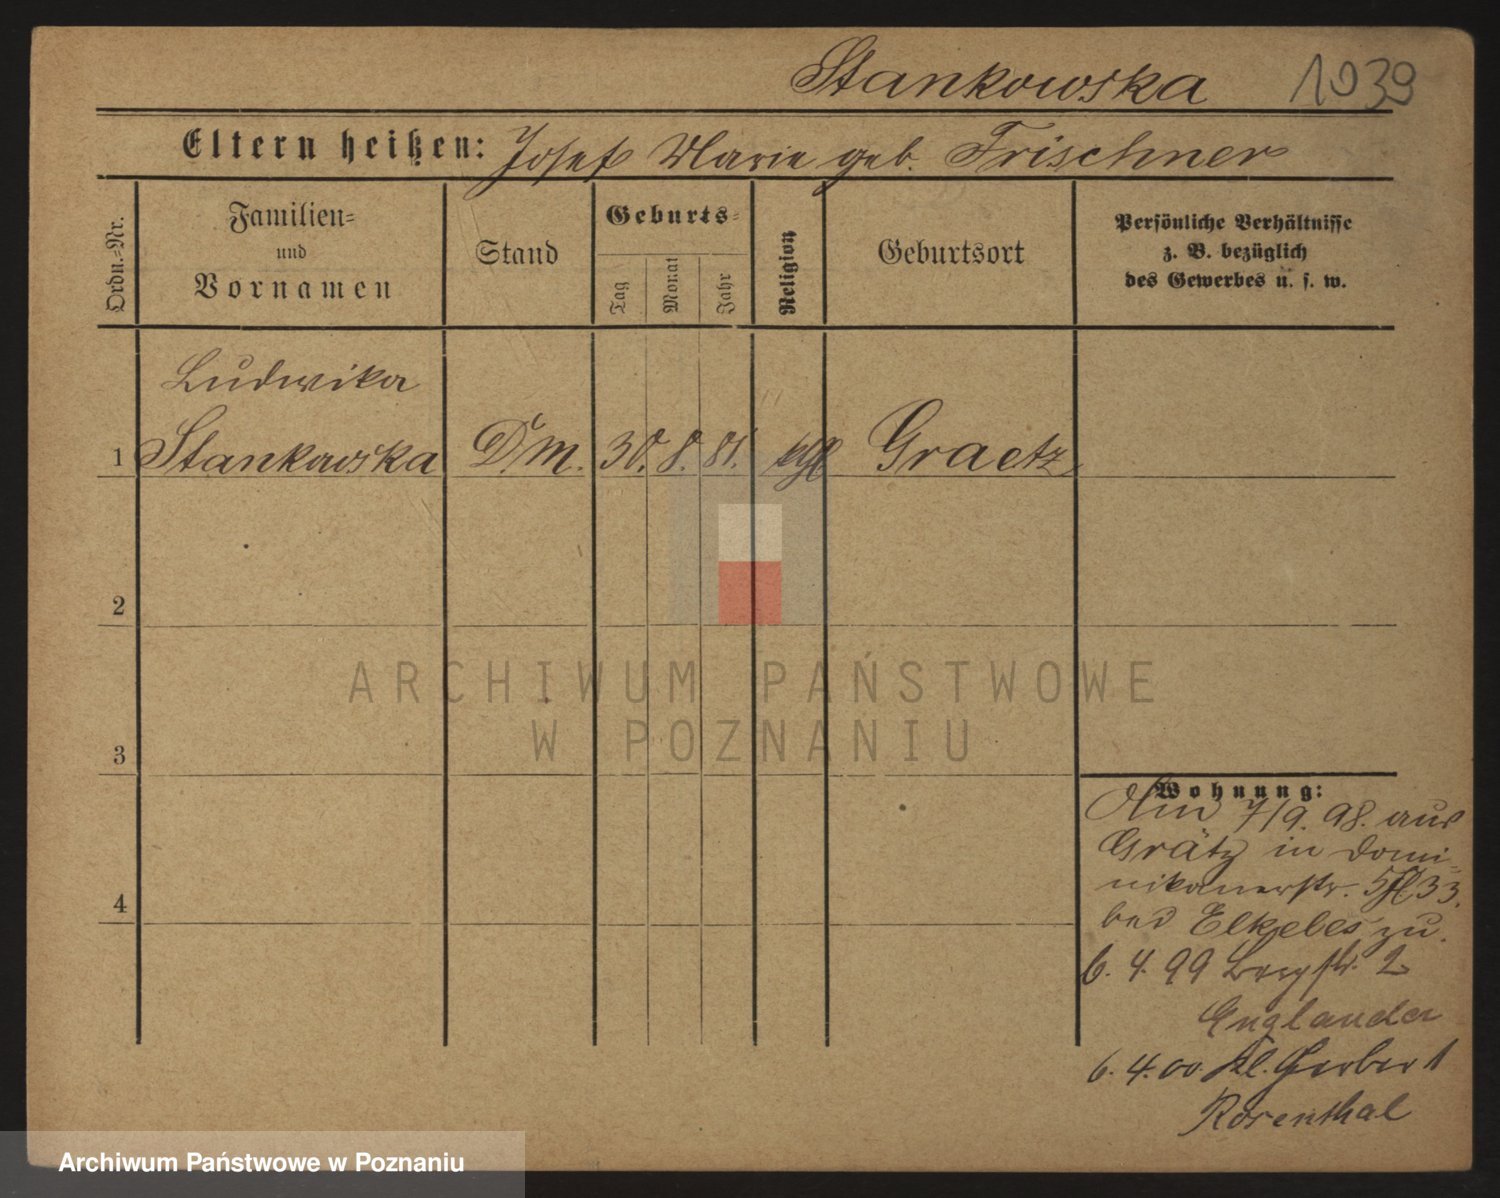 Stankowska 1939
Eltern heißen: Josef Marie geb. Frischner
Ordn.-Nr.
Familien-
und
Vornamen
Stand
Geburts-
Tag
Monat
Jahr
Religion
Geburtsort
Persönliche Verhältnisse
z. B. bezüglich
des Gewerbes u. s. w.
Ludwika
1 Stankowska D.M. 30. 8. 81. kgl Graetz
2
3
4
Wohnung:
7/9. 98. aus
Grätz in Domi-
nikanerstr. 33.
bei Elkeles zu.
6. 4. 99 Bergstr. 2
Englander
6. 4. 00. Kl. Gerber 1
Rosenthal
ARCHIWUM PAŃSTWOWE
W POZNANIU
Archiwum Państwowe w Poznaniu